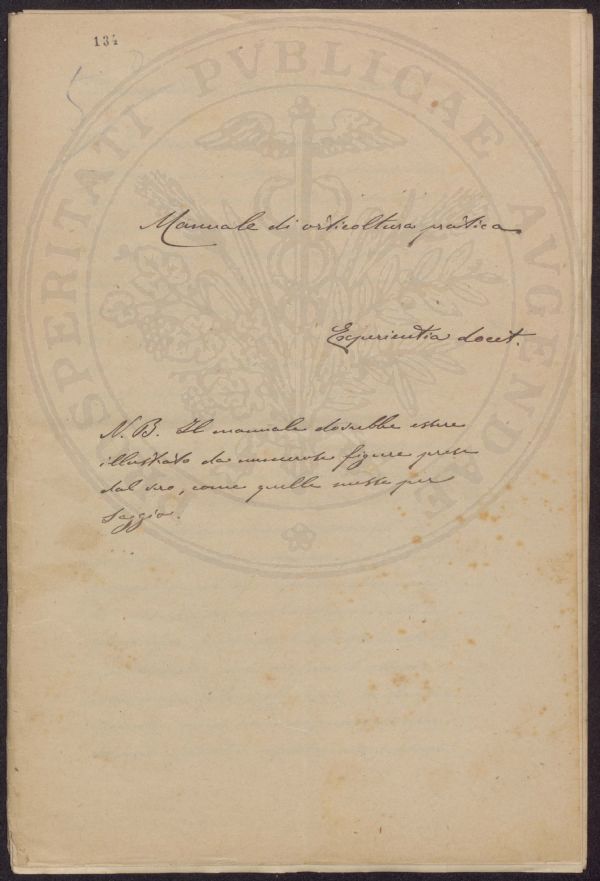 134
Manuale di orticoltura pratica
Experientia docet.
N. B. Il manuale dovrebbe essere
illustrato da numerose figure prese
dal vero, come quelle messe per
saggio.
PROSPERITATI PVBLICAE AVGENDAE